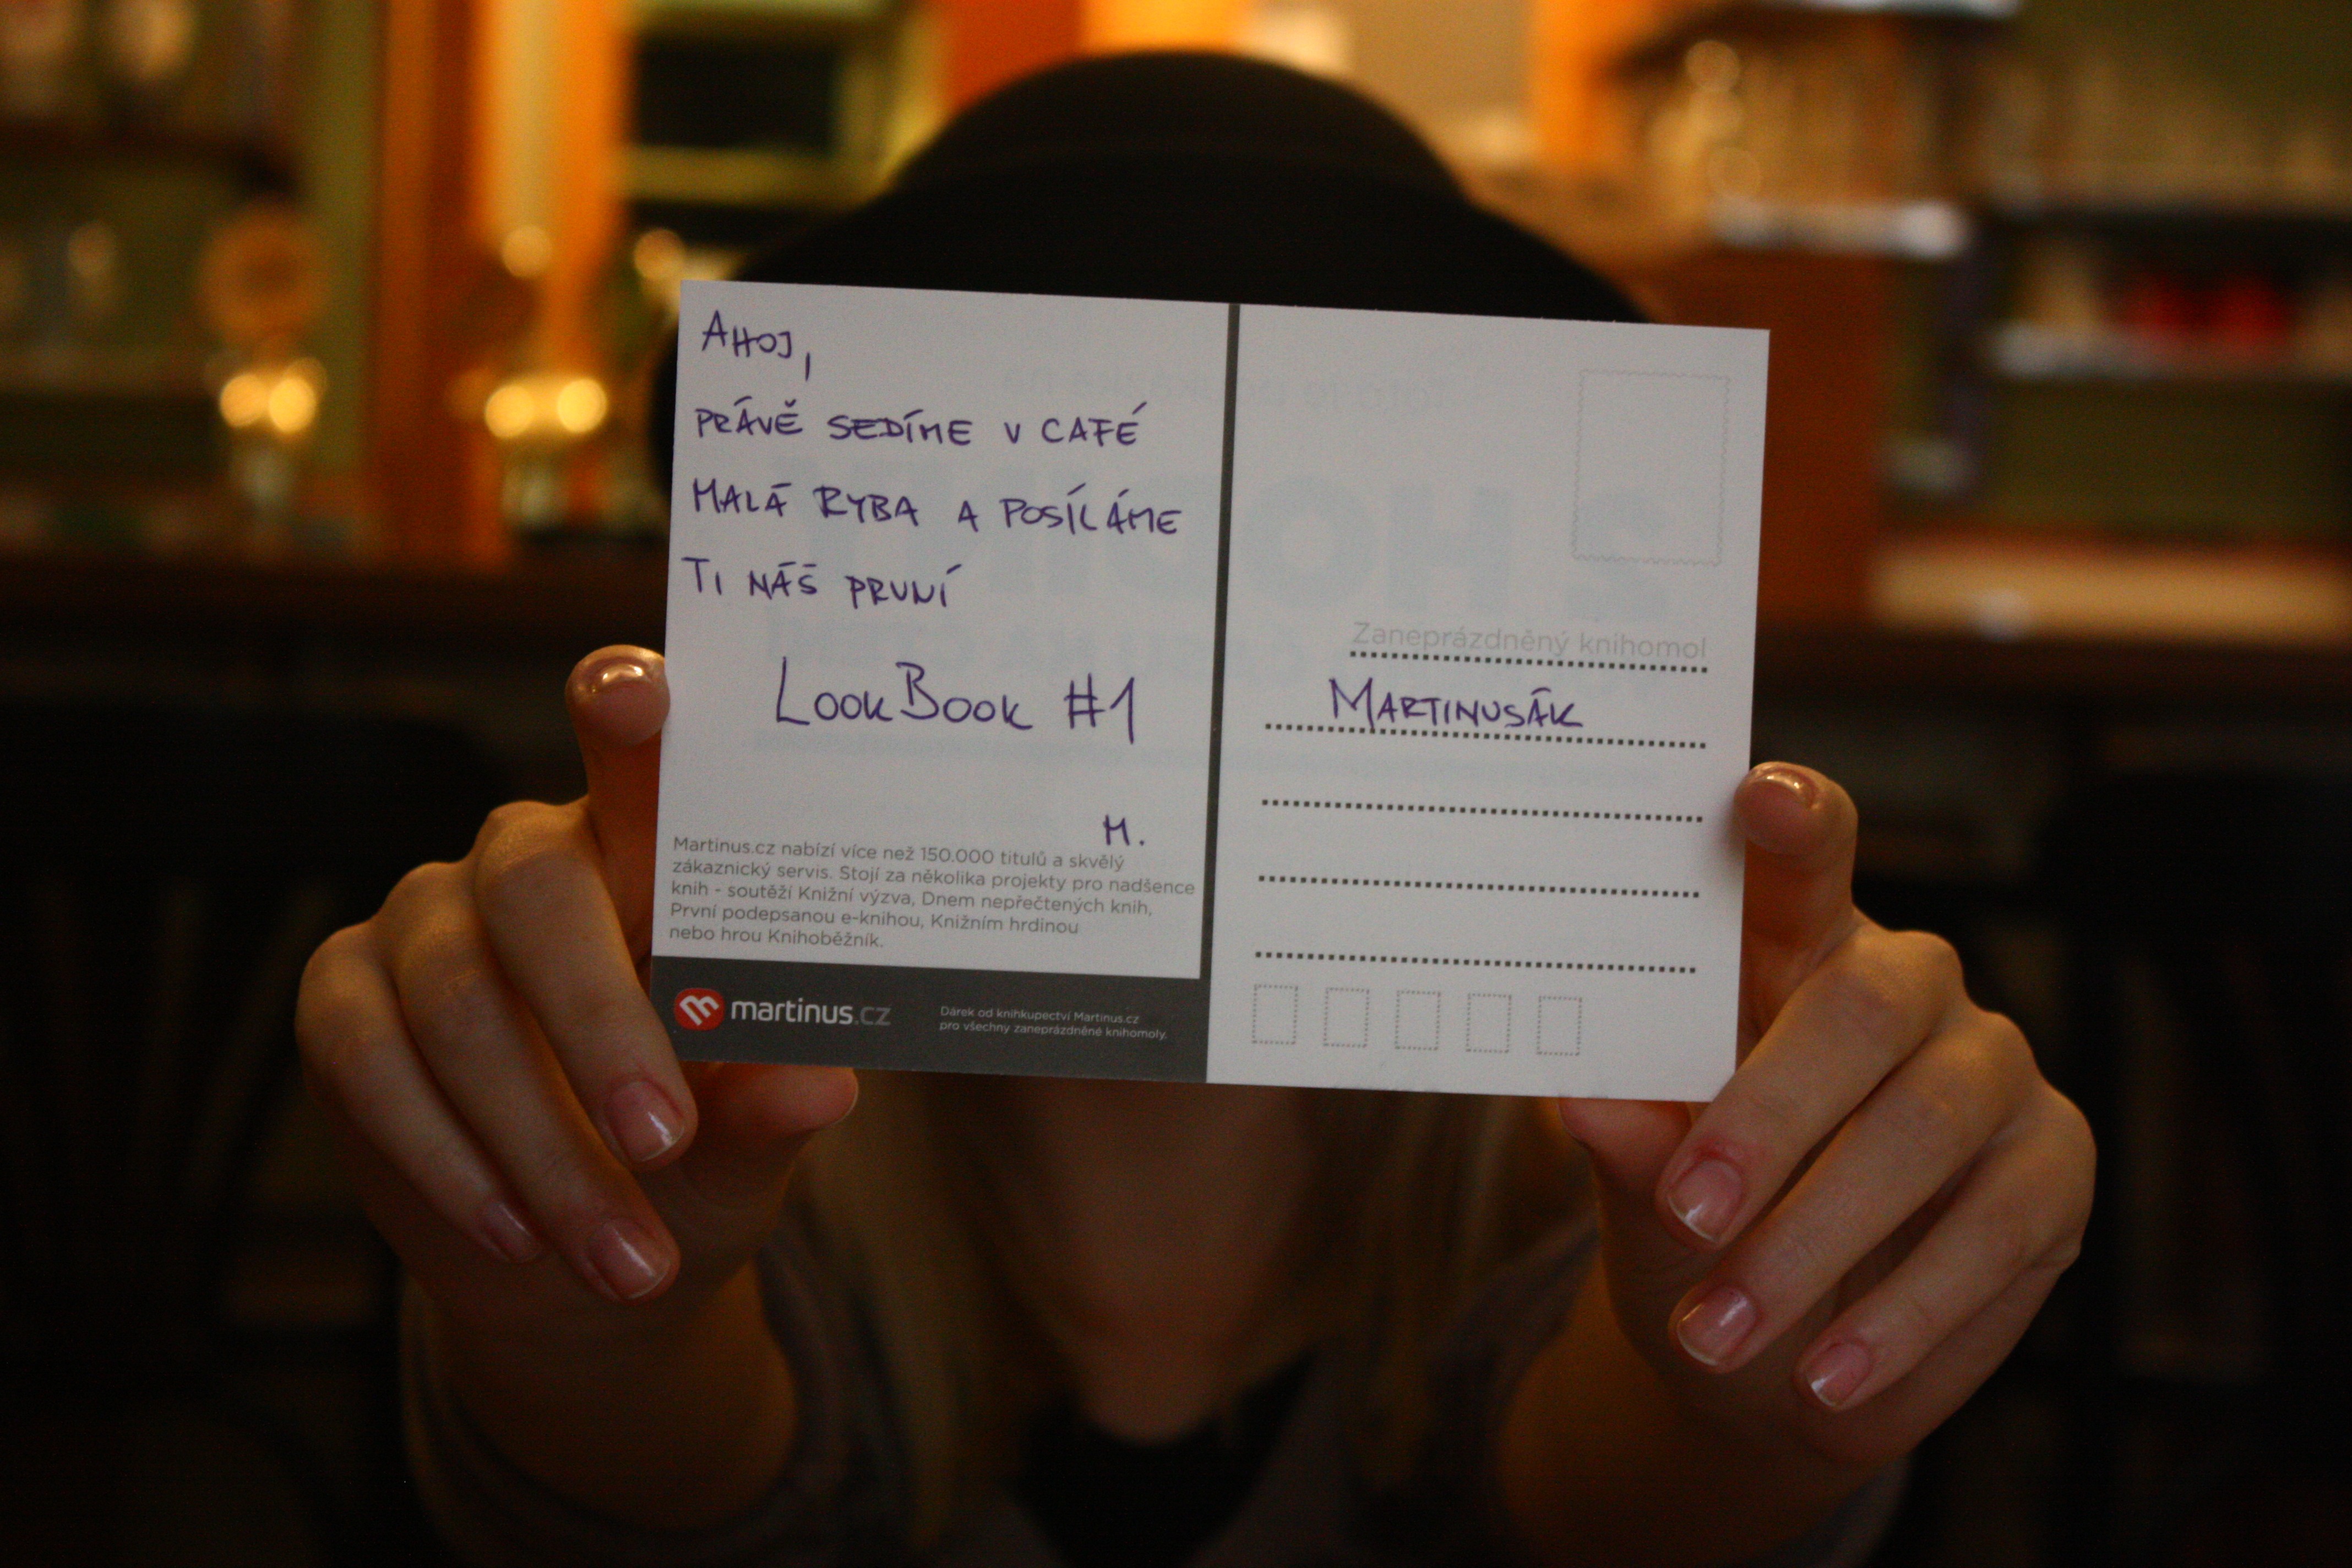 AHOJ,
PRÁVĚ SEDÍME V CAFÉ
MALÁ RYBA A POSÍLÁME
TI NÁŠ PRVNÍ
LOOKBOOK #1
M.
Martinus.cz nabízí více než 150.000 titulů a skvělý
zákaznický servis. Stojí za několika projekty pro nadšence
knih - soutěží Knižní výzva, Dnem nepřečtených knih,
První podepsanou e-knihou, Knižním hrdinou
nebo hrou Knihoběžník.
martinus.cz
Dárek od knihkupectví Martinus.cz
pro všechny zaneprázdněné knihomoly.
Zaneprázdněný knihomol
MARTINUSÁK